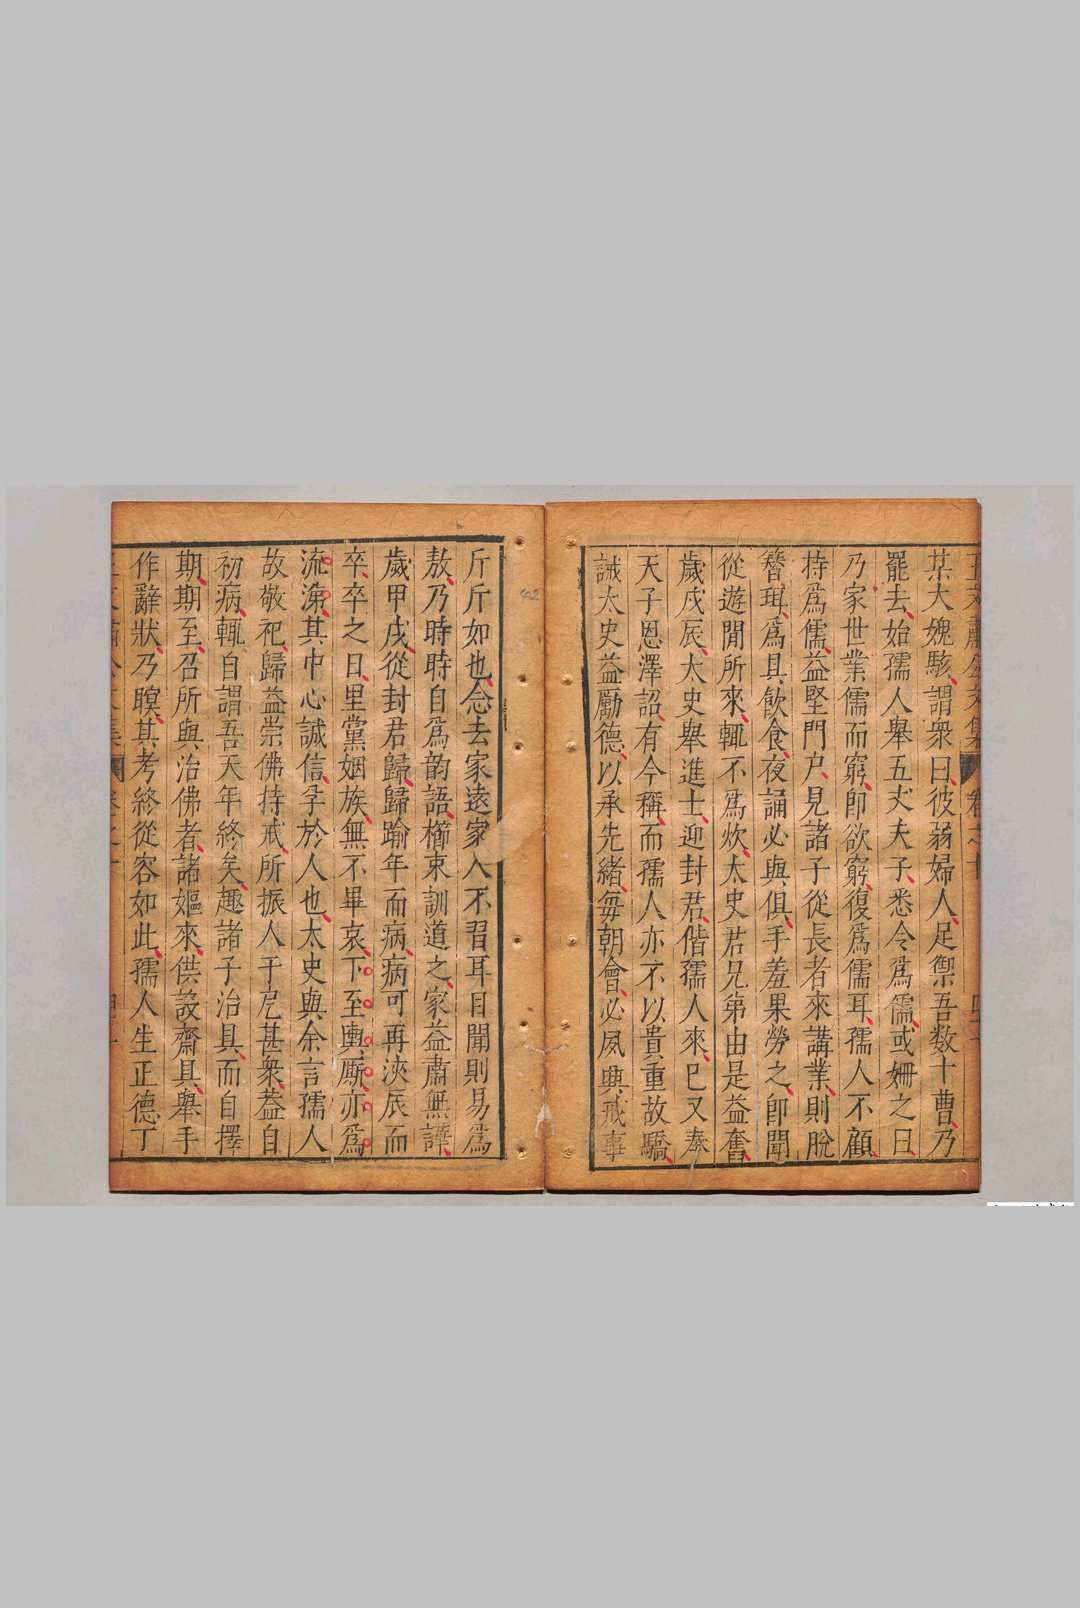 某大媿駭謂衆曰彼弱婦人足禦吾数十曹乃
罷去始孺人舉五丈夫子悉令爲儒或姍之曰
乃家世業儒而窮卽欲窮復爲儒耳孺人不顧
持爲儒益堅門户見諸子從長者來講業則脫
簪珥爲具飮食夜誦必與俱手羞果勞之卽聞
從遊閒所來輒不爲炊太史君兄弟由是益奮
歲戊辰太史舉進士迎封君偕孺人來已又奉
天子恩澤詔有今稱而孺人亦不以貴重故驕
誡太史益勵德以承先緒每朝會必夙興戒事
斤斤如也念去家遠家人不習耳目聞則易爲
敖乃時時自爲韵語櫛束訓道之家益肅無譁
歲甲戌從封君歸歸踰年而病病可再浹辰而
卒卒之日里黨姻族無不畢哀下至輿厮亦爲
流涕其中心誠信孚於人也太史與余言孺人
故敬祀歸益崇佛持戒所振人于戹甚衆葢自
初病輒自謂吾天年終矣趣諸子治具而自擇
期期至召所與治佛者諸嫗來供設齋具舉手
作辭狀乃瞑其考終從容如此孺人生正德丁
42